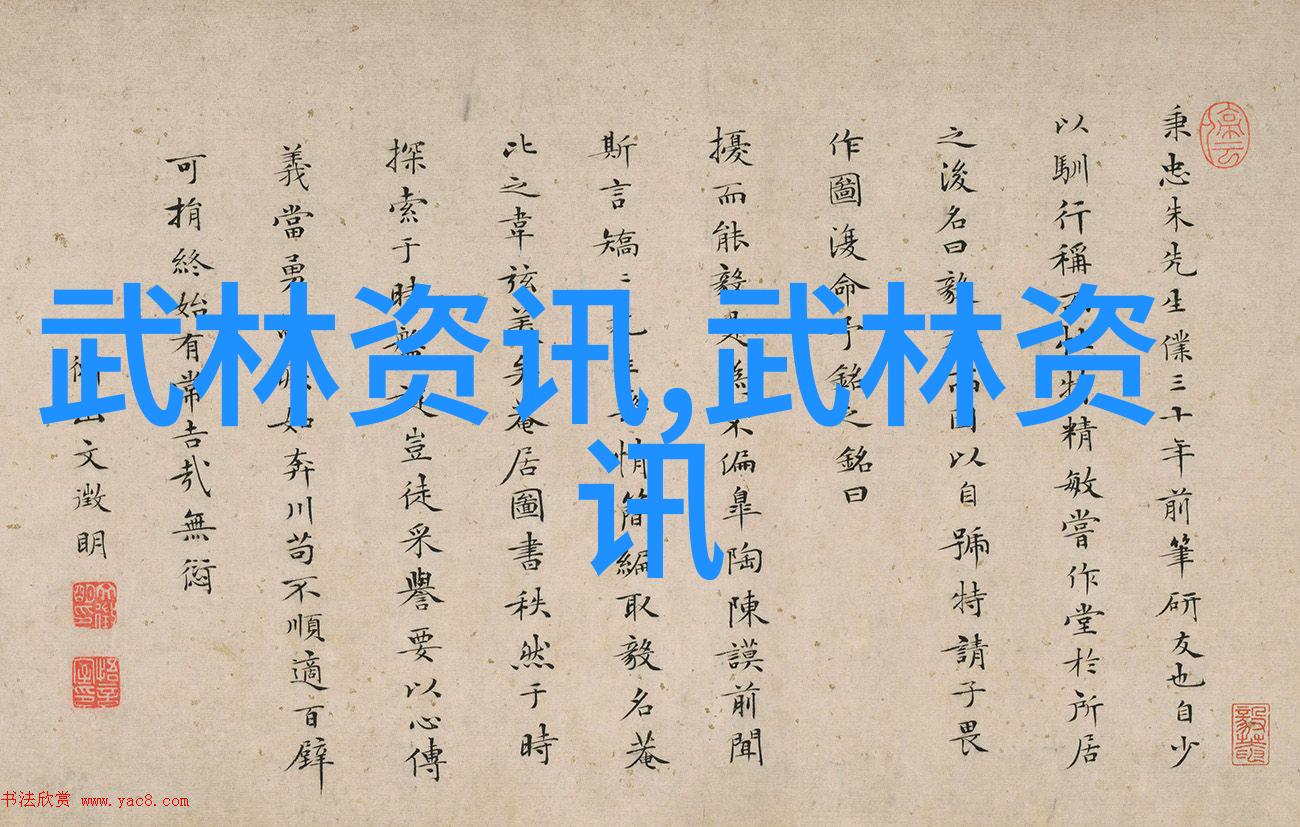 武林资讯,武林资
讯
停云
秉忠朱先生僕三十年前筆研友也自少
以馴行稱物精敏嘗作堂於所居
之後名曰毅以自號特請子畏
作圖復命予銘之銘曰
擾而能毅是不偏皐陶陳謨前聞
斯言矯二情簡編取毅名菴
比之韋弦美矣菴居圖書秩然于時
探索于時豈徒采譽要以心傳
義當勇如奔川苟不順適百臂
可捐終始有常吉哉無愆
衡山文徵明
毅菴
书法欣赏 www.yac8.com